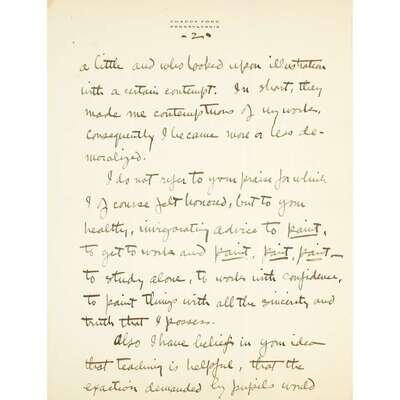 CHADDS FORD
PENNSYLVANIA
-2-
a little and who looked upon illustration
with a certain contempt. In short, they
made me contemptuous of my work,
Consequently I became more or less de-
moralized.
I do not refer to your praise for which
I of course felt honored, but to your
healthy, invigorating advice to paint,
to get to work and paint, paint, paint—
to study alone, to work with confidence,
to paint things with all the sincerity and
truth that I possess.
Also I have beliefs in your idea
that teaching is helpful, that the
exaction demanded by pupils would